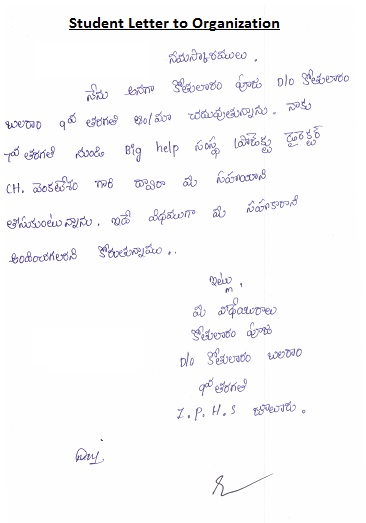 Student Letter to Organization
నమస్కారములు.
నేను అనగా కోతులారం పూజ D/o కోతులారం
బలరాం 9వ తరగతి ఆం/మా చదువుతున్నాను. నాకు
7వ తరగతి నుండి Big help సంస్థ ప్రాజెక్టు డైరెక్టర్
CH. వెంకటేశం గారి ద్వారా మీ సహాయాన్ని
తీసుకుంటున్నాను. ఇదే విధముగా మీ సహకారాన్ని
అందించగలరని కోరుతున్నాము..
ఇట్లు,
మీ విధేయురాలు
కోతులారం పూజ
D/o కోతులారం బలరాం
9వ తరగతి
Z.P.H.S